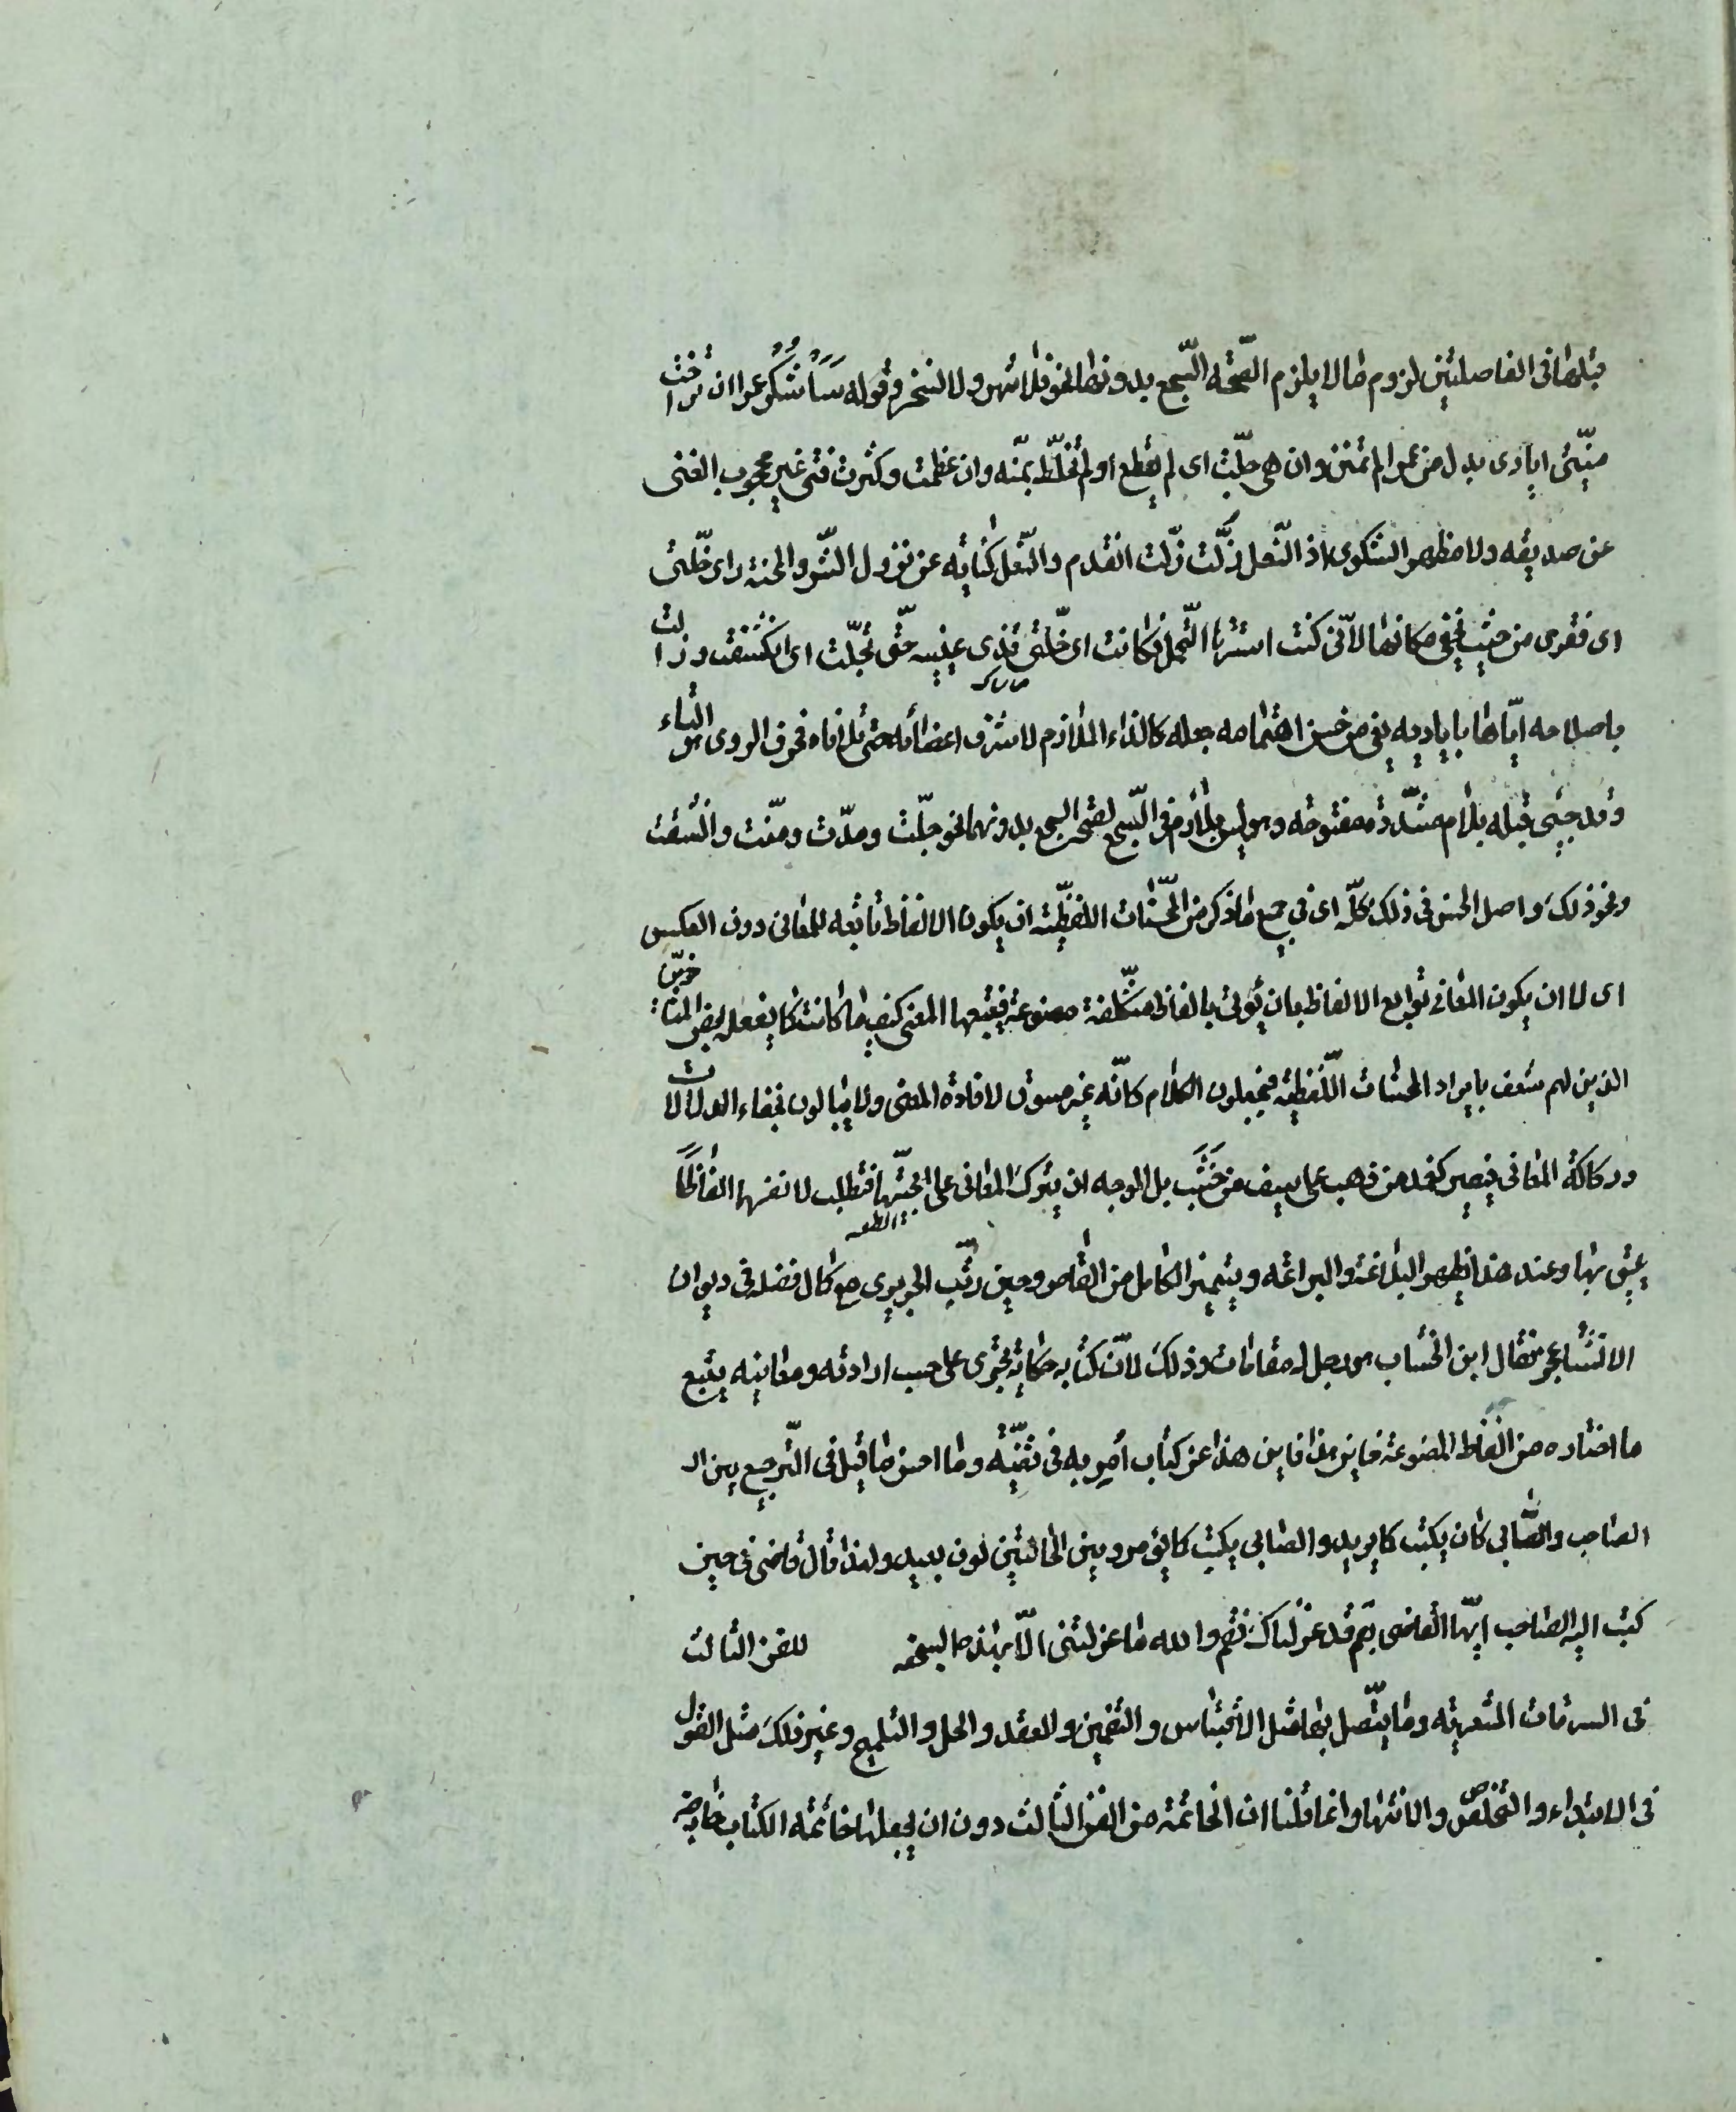 قبلها فى الفاصلتين لزوم مالا يلزم الصّحّة السّجع بدونها نحو فلا تنهر ولا تسخر وقوله سَاَشكُرُ عمرا ان تراخت
منيّتى ايادى بدل من عمرا لم تمنن وان هى جلّت اى لم يقطع او لم تخلّط بمنّه وان عظمت وكثرت فتى غير محجوب الغنى
عن صديقه ولا مظهر الشكوى اذ النّعل زلّت زلّت القدم والنّعل كنايه عن نزول الشّر والمحنة رأى خلّتى
اى فقرى من حيث يخفى مكانها لانّى كنت استرها بالتّجمل فكانت اى خلّتى قذى عينيه حتّى تجلّت اى انكشفت وزالت
باصلاحه ايّاها باياديه يعنى من حسن اهتمامه جعله كالداء الملازم لاشرف اعضائه حتى تلافاه فحرف الروى هو التاء
وقد جيئ قبله بلام مشدّدة مفتوحه وهو ليس بلازم فى السّجع لصحّة السجع بدونها نحو جلّت ومدّت ومنّت وانشقت
ونحو ذلك واصل الحسن فى ذلك كلّه اى فى جميع ما ذكر من المحسّنات اللفظيّة ان يكون الالفاظ تابعه للمعانى دون العكس
اى لا ان يكون المعانى توابع الالفاظ بان يؤتى بالفاظ متكلّفة مصنوعة فيتبعها المعنى كيف ما كانت كما يفعله بعض المتاخرين
الذين لهم شعف بايراد المحسنات اللّفظيه فيجعلون الكلام كانّه غير مسوق لافادة المعنى ولا يبالون بخفاء الدلالات
وركاكة المعانى فيصير كغمد من ذهب على سيف من خَشَب بل الوجه ان يترك المعانى على سجيّتها فتطلب لانفسها الفاظًا
يليق بها وعند هذا يظهر البلاغة والبراعه ويتميز الكامل من القاصر وحين رتّب الحريرى مع كمال فضله فى ديوان
الانشاء عجز فقال ابن الخشاب هو رجل له مقامات وذلك لانّ كتابه حكاية تجرى على حسب ارادته ومعانيه يتبع
ما اختاره من الفاظ المصنوعة فاين هذا فاين هذا عن كتاب اُمِر به فى قضيّة وما احسن ما قيل فى التّرجيع بين الـ
الصاحب والصّابى كان يكتب كما يريد والصابى يكتب كما يؤمر وبين الحالتين لون بعيد ولهذا قال قاضى قم حين
كتب اليه الصاحب ايّها القاضى بقم قد عزلناك فقم والله ما عزلتنى الّا بهذه السجعه للفن الثالث
فى السرقات الشعريّه وما يتّصل بها مثل الاقتباس والتضمين والعقد والحل والتلميح وغير ذلك مثل القول
فى الابتداء والتخلص والانتهاء وانما قلنا ان الخاتمة من الفن الثالث دون ان يجعلها خاتمه الكتاب خارجه